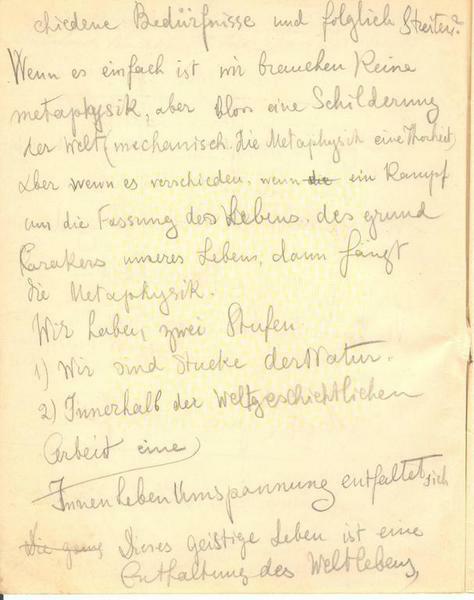 chiedene Bedürfnisse und folglich Streiten?
Wenn es einfach ist wir brauchen keine
metaphysik, aber bloss eine Schilderung
der Welt (mechanisch. die Metaphysik eine Thorheit)
Aber wenn es verschieden. wenn die ein Kampf
um die Fassung des Lebens. des grund
Carakers unseres Lebens, dann fängt
die Metaphysik.
Wir haben zwei Stufen
1) Wir sind Stucke der Natur.
2) Innerhalb der Weltgeschichtlichen
Arbeid eine
Innenleben Umspannung entfaltet sich
Die ganz Dieses geistige Leben ist eine
Enthaltung des Weltlebens,